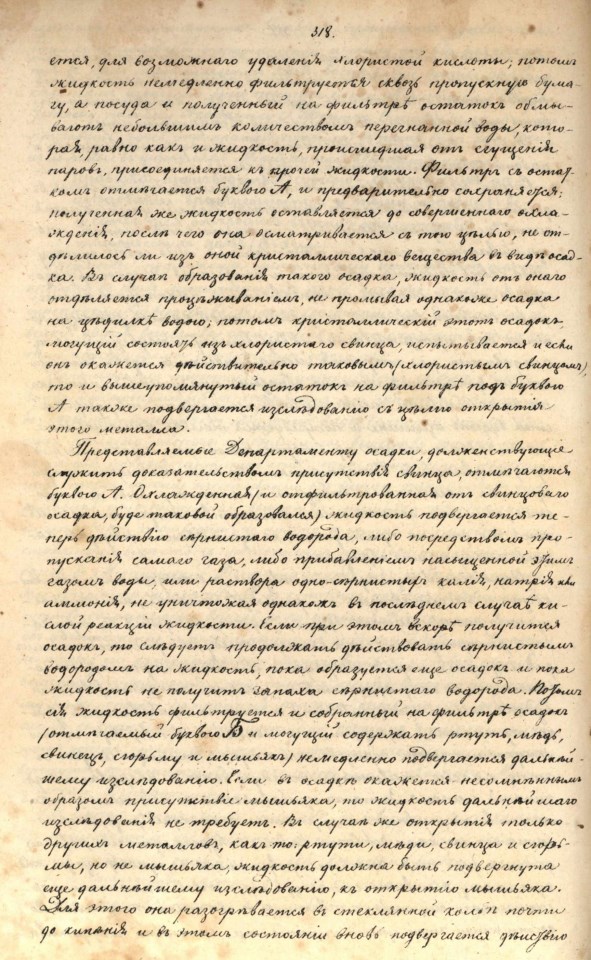 318.
ется, для возможнаго удаленія хлористой кислоты; потомъ
жидкость немедленно фильтруется сквозь пропускную бума-
гу, а посуда и полученный на фильтрѣ остатокъ обмы-
ваютъ небольшимъ количествомъ перегнанной воды, кото-
рая, равно какъ и жидкость, происшедшая отъ сгущенія
паровъ, присоединяется къ прочей жидкости. Фильтръ съ остат-
комъ отмѣчается буквою А, и предварительно сохраняется;
полученная же жидкость оставляется до совершеннаго охла-
жденія, послѣ чего она осматривается съ тою цѣлью, не от-
дѣлилось ли изъ оной кристаллическаго вещества въ видѣ осад-
ка. Въ случаѣ образованія такого осадка, жидкость отъ онаго
отдѣляется процѣживаніемъ, не промывая однакоже осадка
на цѣдилкѣ водою; потомъ кристаллическій этотъ осадокъ,
могущій состоять изъ хлористаго свинца, испытывается и если
онъ окажется дѣйствительно таковымъ (хлористымъ свинцомъ),
то и вышеупомянутый остатокъ на фильтрѣ подъ буквою
А также подвергается изслѣдованію съ цѣлію открытія
этого металла.
Представляемые Департаменту осадки, долженствующіе
служить доказательствомъ присутствія свинца, отмѣчаются
буквою А. Охлажденная (и отфильтрованная отъ свинцоваго
осадка, буде таковой образовался) жидкость подвергается те-
перь дѣйствію сѣрнистаго водорода, либо посредствомъ про-
пусканія самаго газа, либо прибавленіемъ насыщенной этимъ
газомъ воды, или раствора одно-сѣрнистыхъ калія, натрія или
аммонія, не уничтожая однакожъ въ послѣднемъ случаѣ ки-
слой реакціи жидкости. Если при этомъ вскорѣ получится
осадокъ, то слѣдуетъ продолжать дѣйствовать сѣрнистымъ
водородомъ на жидкость, пока образуется еще осадокъ и пока
жидкость не получитъ запаха сѣрнистаго водорода. Потомъ
сія жидкость фильтруется и собранный на фильтрѣ осадокъ
(отмѣчаемый буквою Б и могущій содержать ртуть, мѣдь,
свинецъ, сюрьму и мышьякъ) немедленно подвергается дальнѣй-
шему изслѣдованію. Если въ осадкѣ окажется несомнѣннымъ
образомъ присутствіе мышьяка, то жидкость дальнѣйшаго
изслѣдованія не требуетъ. Въ случаѣ же открытія только
другихъ металловъ, какъ то: ртути, мѣди, свинца и сюрь-
мы, но не мышьяка, жидкость должна быть подвергнута
еще дальнѣйшему изслѣдованію, къ открытію мышьяка.
Для этого она разогрѣвается въ стеклянной колбѣ почти
до кипѣнія и въ этомъ состояніи вновь подвергается дѣйствію